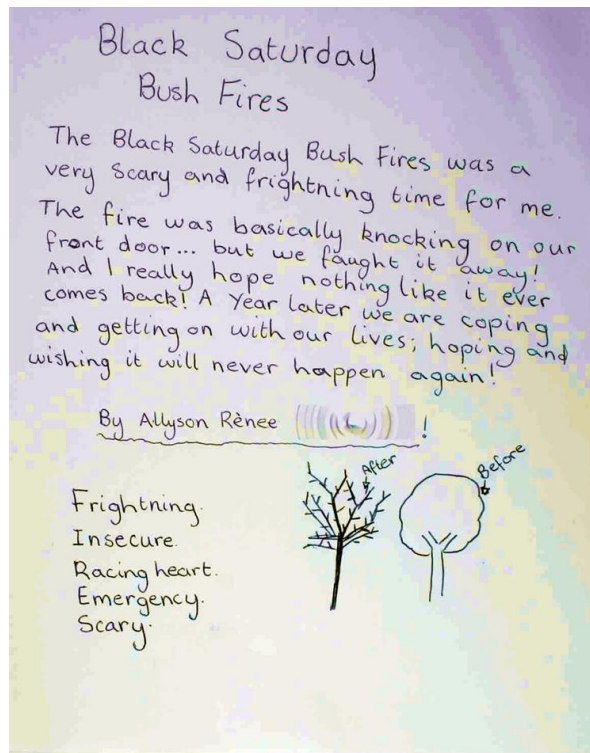 Black Saturday
Bush Fires
The Black Saturday Bush Fires was a
very scary and frightning time for me.
The fire was basically knocking on our
front door... but we faught it away!
And I really hope nothing like it ever
comes back! A Year later we are coping
and getting on with our lives; hoping and
wishing it will never happen again!
By Allyson Rènee !
After
Before
Frightning.
Insecure.
Racing heart.
Emergency.
Scary.